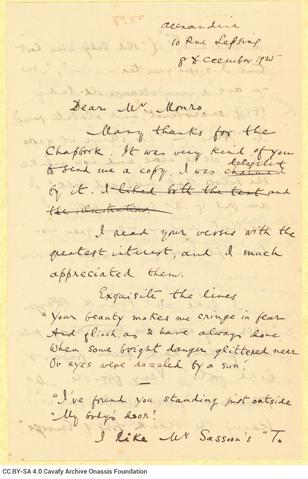 Alexandria
10 Rue Lepsius
8 December 192
Dear Mr. Monro,
Many thanks for the
Chapbook. It was very kind of you
to send me a copy. I was charmed delighted
by it. I liked both the text and
the illustrations.
I read your verses with the
greatest interest, and I much
appreciated them.
Exquisite, the lines
"Your beauty makes me cringe in fear
And flinch, as I have always done
When some bright danger glittered near
Or eyes were dazzled by a sun.
—
"I've found you standing just outside
"My body's door!
I like Mr Sassoon's "To
CC BY-SA 4.0 Cavafy Archive Onassis Foundation